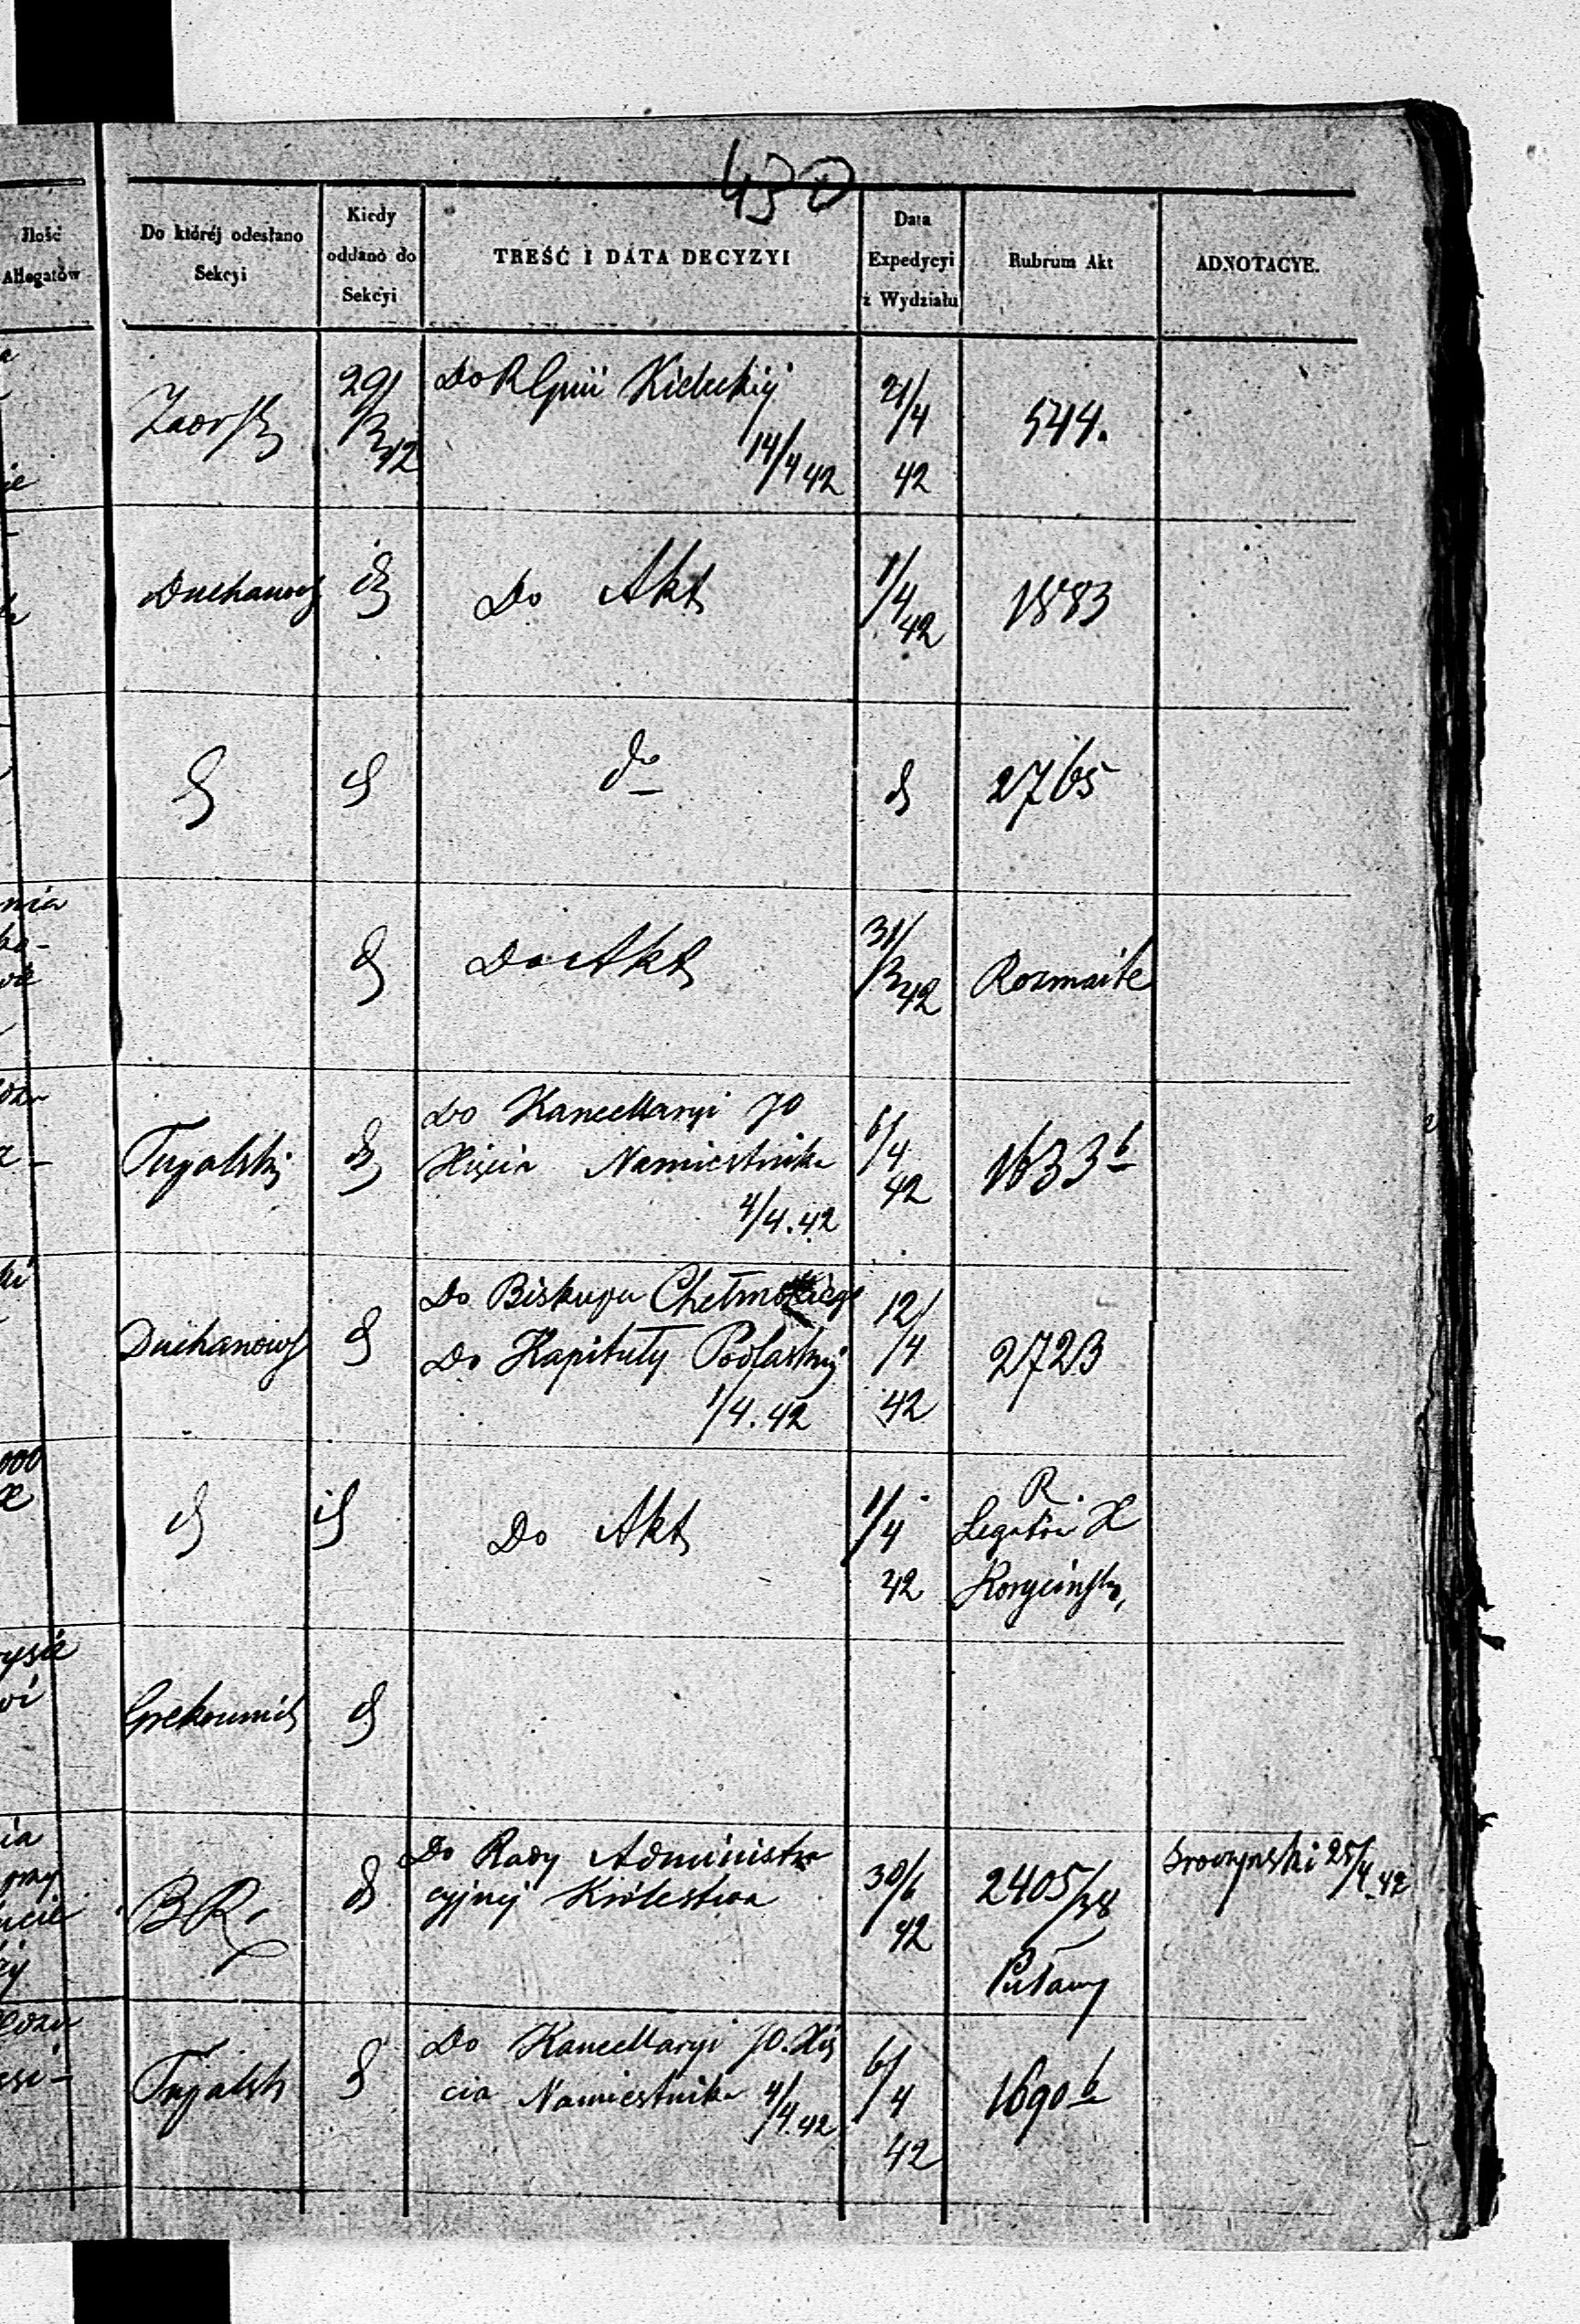 430
Ilość
Allegatów
Do któréj odesłano
Sekcyi
Kiedy
oddano do
Sekcyi
TREŚĆ I DATA DECYZYI
Data
Expedycyi
z Wydziału
Rubrum Akt
ADNOTACYE.
Zaorski
29/
/3 42
Do R Gnii Kieleckiej
14/4 42
21/4
42
544.
Duchanows
id
Do Akt
1/4
42
1883
d
d
do
d
2765
nia
d
Do Akt
31/
/3 42
Rozmaite
Tugalski
d
Do Kancellaryi JO
Xięcia Namiestnika
4/4. 42
6/4
42
1633 b
Duchanows
d
Do Biskupa Chełmskiego
Do Kapituły Podlaskiej
1/4. 42
12/
/4
42
2723
000
d
id
Do Akt
1/4
42
R.
Legatów X
Korycińsk
d
ia
BR.
d
Do Rady Administra
cyjnej Królestwa
30/6
42
2405/38
Puławy
25/4 42
Tugalsk
d
Do Kancellaryi JO. Xię
cia Namiestnika 4/4. 42
6/4
42
1690 b